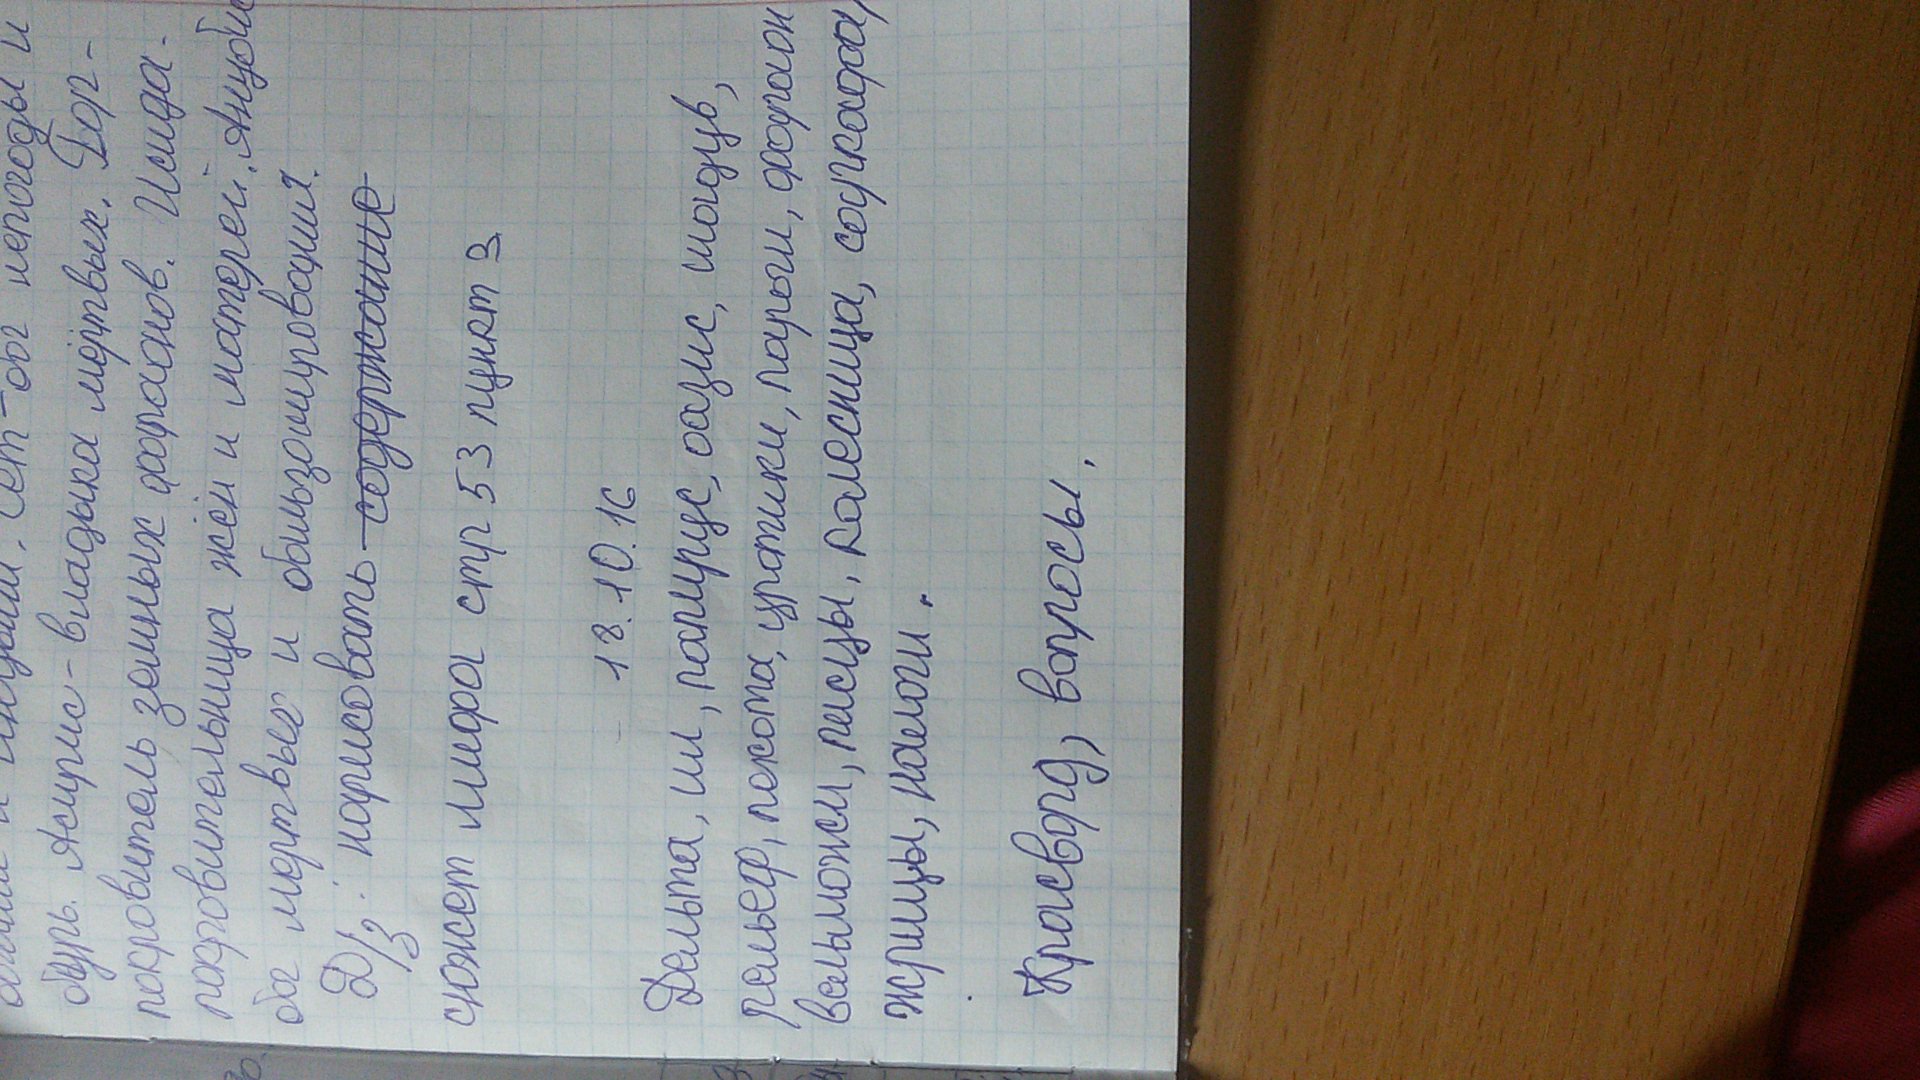 Сет-бог непогоды и
бурь. Асирис-владыка мёртвых. Гор-
покровитель земных фараонов. Исида-
покровительница жён и матерей. Анубис
бог мертвых и бальзамирования.
Д/з: нарисовать содержание
сюжет мифа стр 53 пункт 3
18.10.16
Дельта, ил, папирус, оазис, шадуф,
рельеф, пехота, цратики, пароги, фараон
вельможи, писцы, колесница, саркофаг,
жрицы, налоги.
Красворд, вопросы.